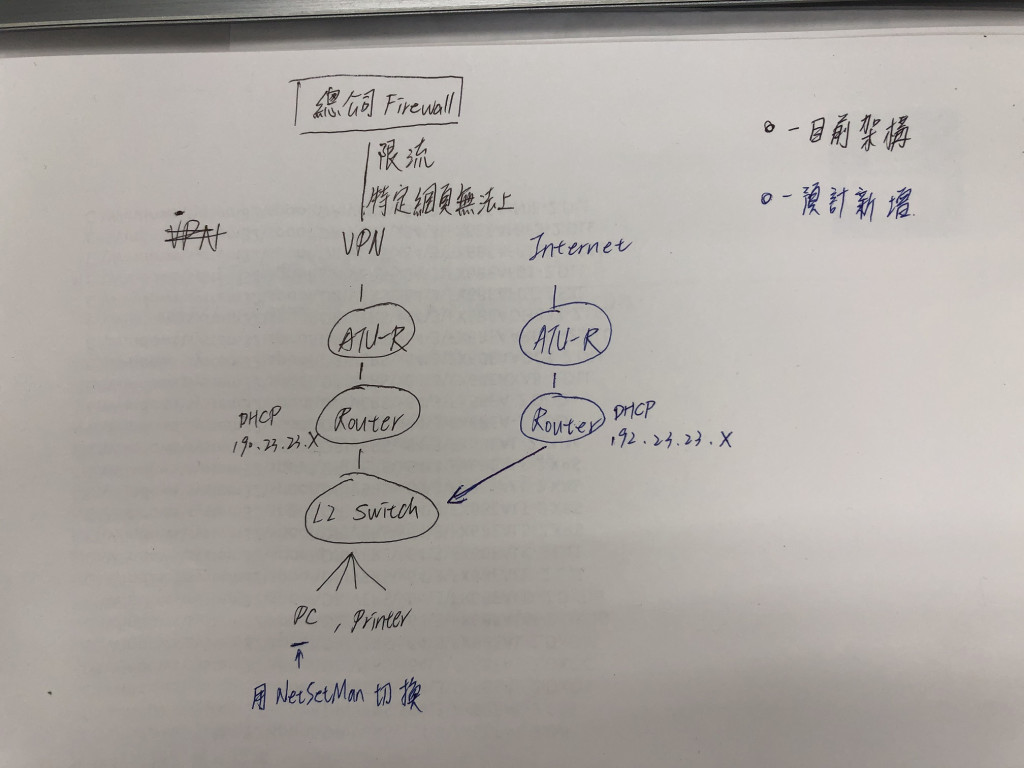 總公司 Firewall
限流
特定網頁無法上
VPN
VPN
Internet
ATU-R
ATU-R
Router
DHCP
190.23.23.X
Router
DHCP
192.23.23.X
L2 Switch
PC , Printer
用 NetSetMan 切換
－目前架構
－預計新增